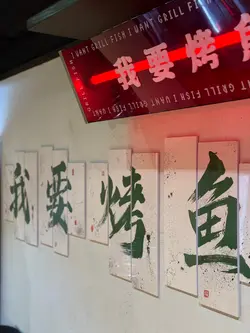 I WANT GRILL FISH I WANT GRILL FISH I WANT
我要烤
GRILL FISH I WANT GRILL FISH I WANT
我要烤鱼